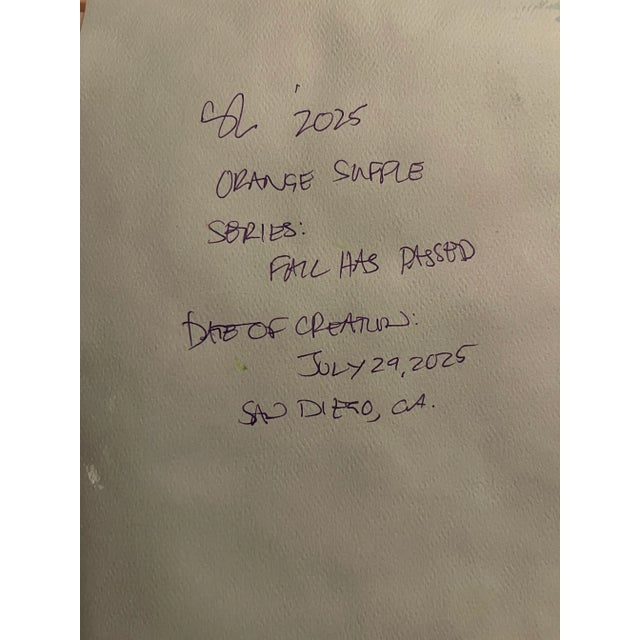 '2025
ORANGE SUPPLE
SERIES:
FALL HAS PASSED
DATE OF CREATION:
JULY 29, 2025
SAN DIEGO, CA.